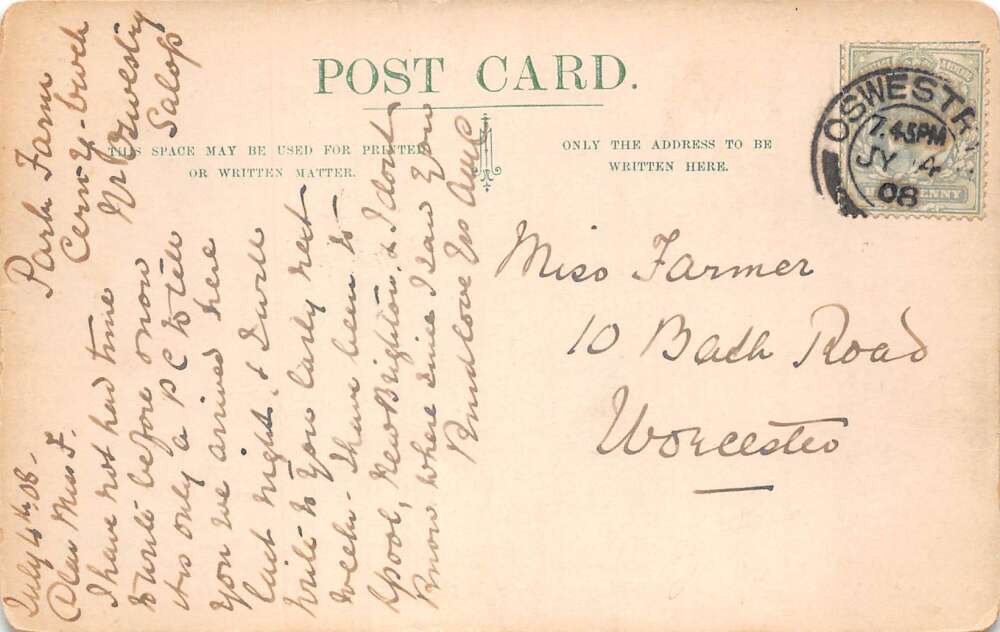 POST CARD.
THIS SPACE MAY BE USED FOR PRINTED
OR WRITTEN MATTER.
ONLY THE ADDRESS TO BE
WRITTEN HERE.
OSWESTRY
7.45PM
JY 4
08
HALFPENNY
Miss Farmer
10 Bath Road
Worcester
Park Farm
Cerny-bwch
Nr Oswestry
Salop
July 4th. 08.
Dear Miss F.
I have not had time
to write before now
it is only a PC to tell
you we arrived here
last night, & I will
write to you early next
week. I have been to
L'pool, New Brighton, & I dont
know where since I saw you
Kind love Yrs